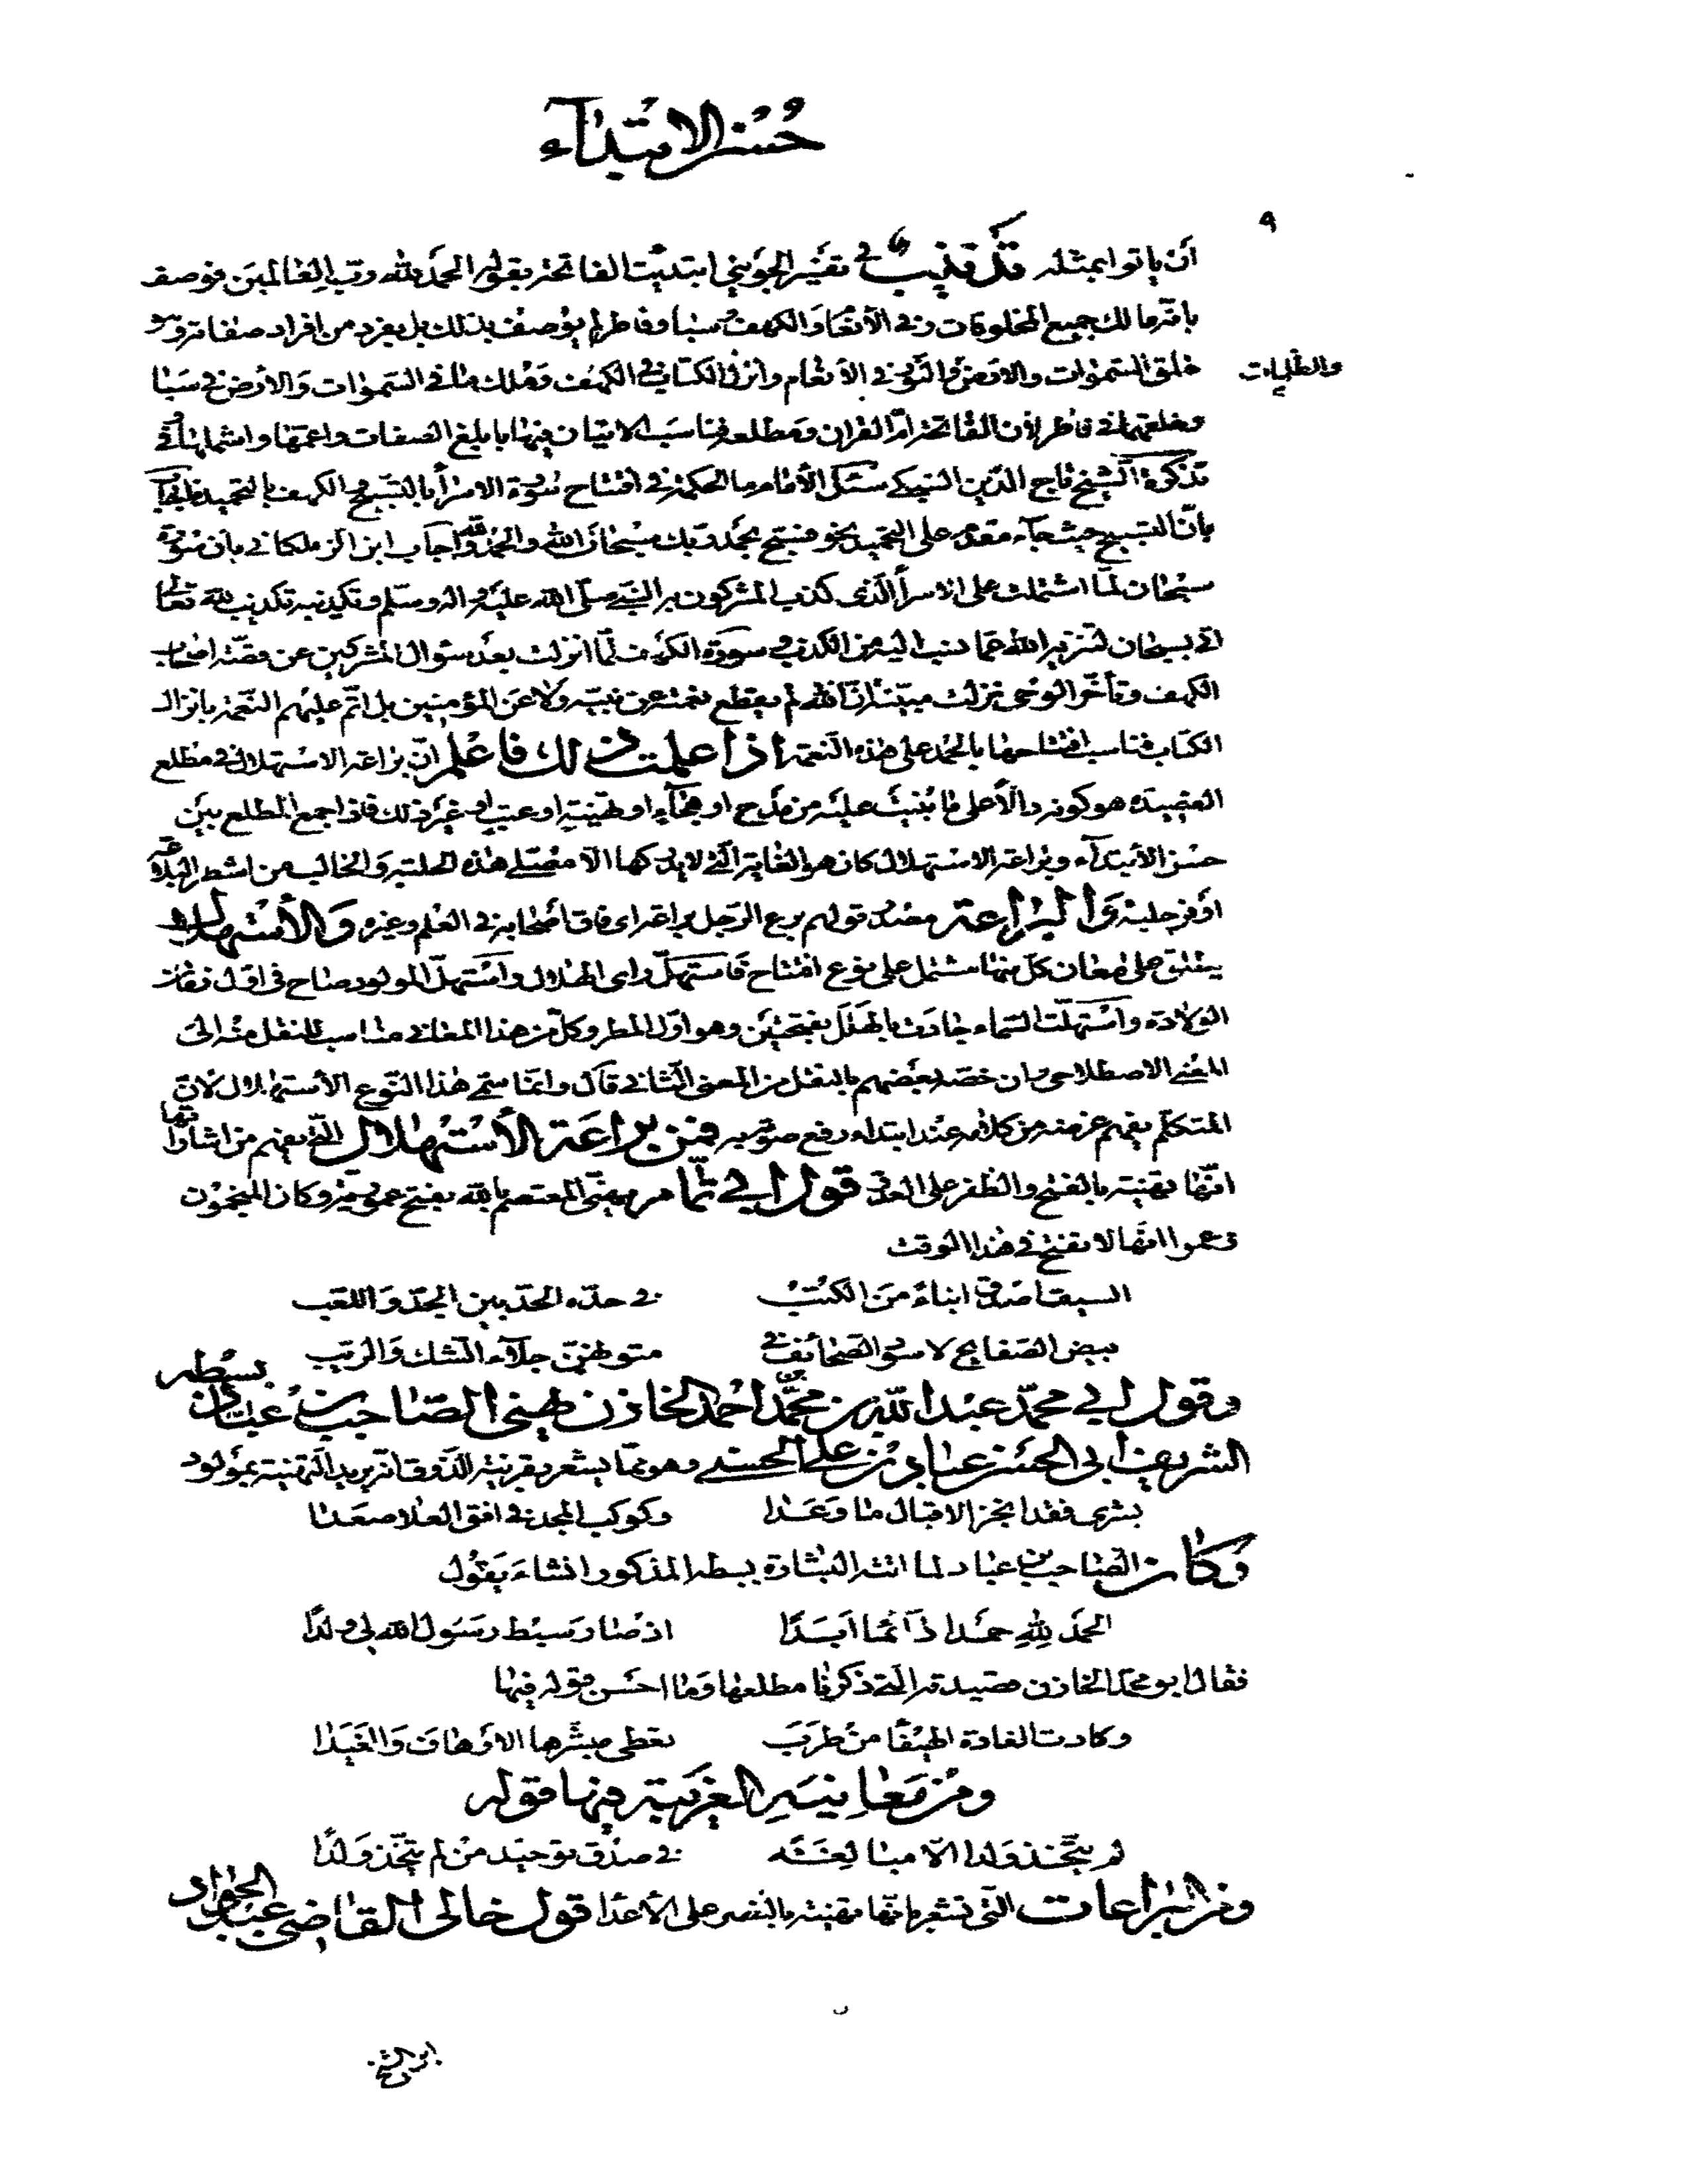 حُسْن الابتدآء
٩
أن ياتوا بمثله تذنيب في تفسير الجويني ابتديت الفاتحة بقوله الحمد لله ربّ العالمين فوصف
بانّه مالك جميع المخلوقات وفى الأنعام والكهف وسبا وفاطر لم يوصف بذلك بل بفرد من افراد صفاته وهو
خلق السموات والارض والظلمات والنور في الأنعام وانزل الكتاب في الكهف وملك ما في السموات والأرض في سبا
والظلمات
وخلقهما في فاطر لأن الفاتحة امّ القران ومطلعه فناسب الاتيان فيها بابلغ الصفات واعمّها واشملها في
تذكرة الشيخ تاج الدّين السبكي سئل الأمام ما الحكمة في افتتاح سورة الاسرأ بالتسبيح والكهف بالتحميد فاجاب
بانّ التسبيح حيث جآء مقدم على التحميد نحو فسبح بحمد ربك سبحان الله والحمد لله واجاب ابن الزملكاني بان سورة
سبحان لمّا اشتملت على الاسرأ الذى كذب المشركون به النبي صلى الله عليه واله وسلم وتكذيبه تكذيب لله تعالى
اتى بسبحان لتنزيه الله عمّا نسب اليه من الكذب وسورة الكهف لمّا انزلت بعد سؤال المشركين عن قصّة اصحاب
الكهف وتأخّر الوحى نزلت مبيّنة انّ الله لم يقطع نعمته عن نبيّه ولا عن المؤمنين بل اتم عليهم النّعمة بانزال
الكتاب فناسب افتتاحها بالحمد على هذه النعمة اذا علمت ذلك فاعلم انّ براعة الاستهلال في مطلع
القصيدة هو كونه دالأ على ما بُنيت عليه من مدح او هجآء او تهنية او عتب او غير ذلك فاذا جمع المطلع بين
حسن الأبتدآء وبراعة الاستهلال كان هو الغاية التي لا يدركها الا مصلّى هذه الحلبة والحالب من اشطر البلاغة
اوفر حلبة والبراعة مصدر قولهم برع الرّجل براعة اى فاق أصحابه في العلم وغيره والأستهلال
يطلق على معان كلّ منها مشتمل على نوع افتتاح فاستهلّ راى الهلال واستهلّ المولود صاح في اوّل زمان
الولادة واستهلّت السّماء جادت بالهلل بفتحتين وهو اوّل المطر وكلّ من هذه المعاني مناسب للنقل منه الى
المعنى الاصطلاحى وان خصّه بعضهم بالنقل من المعنى الثاني قال وانّما سمى هذا النّوع الأستهلال لانّ
المتكلّم يفهم غرضه من كلامه عند ابتداء رفع صوته به فمن براعة الأستهلال التي يفهم من اشارتها
انّها تهنية بالفتح والظفر على العدو قول ابي تمّام يهنّى المعتصم بالله بفتح عمورية وكان المنجمون
زعموا انّها لا تفتح في هذا الوقت
السيف اصدق انباءً من الكتب في حدّه الحدّ بين الجدّ واللعب
بيض الصفايح لا سود الصّحائف في متونهنّ جلآء الشك والرّيب
وقول ابي محمّد عبد الله بن محمّد بن احمد الخازن يهنى الصاحب بن عبّاد بسبطه
الشريف ابى الحسن عباد بن على الحسنى وهو ممّا يشعر بقرينة الذّوق انّه يريد التهنية بمولود
بشرى فقد انجز الاقبال ما وعدا وكوكب المجد في افق العلا صعدا
وكان الصّاحب بن عباد لما اتته البشارة بسبطه المذكور انشاء يقول
الحمد لله حمدا دآئما أبدا اذ صار سبط رسول الله لى ولدًا
فقال ابو محمد الخازن قصيدته التي ذكرنا مطلعها وما احسن قوله فيها
وكادت الغادة الهيفا من طرب تعطى مبشّرها الارهاف والغيدا
ومن معانيه الغريبة فيها قوله
لم يتّخذ ولدا الاّ مبالغة في صدق توحيد من لم يتّخذ ولدًا
ومن البراعات التى تشعر بانّها تهنية بالنصر على الأعدا قول خالى القاضى عبد الجواد
ابن الشيخ